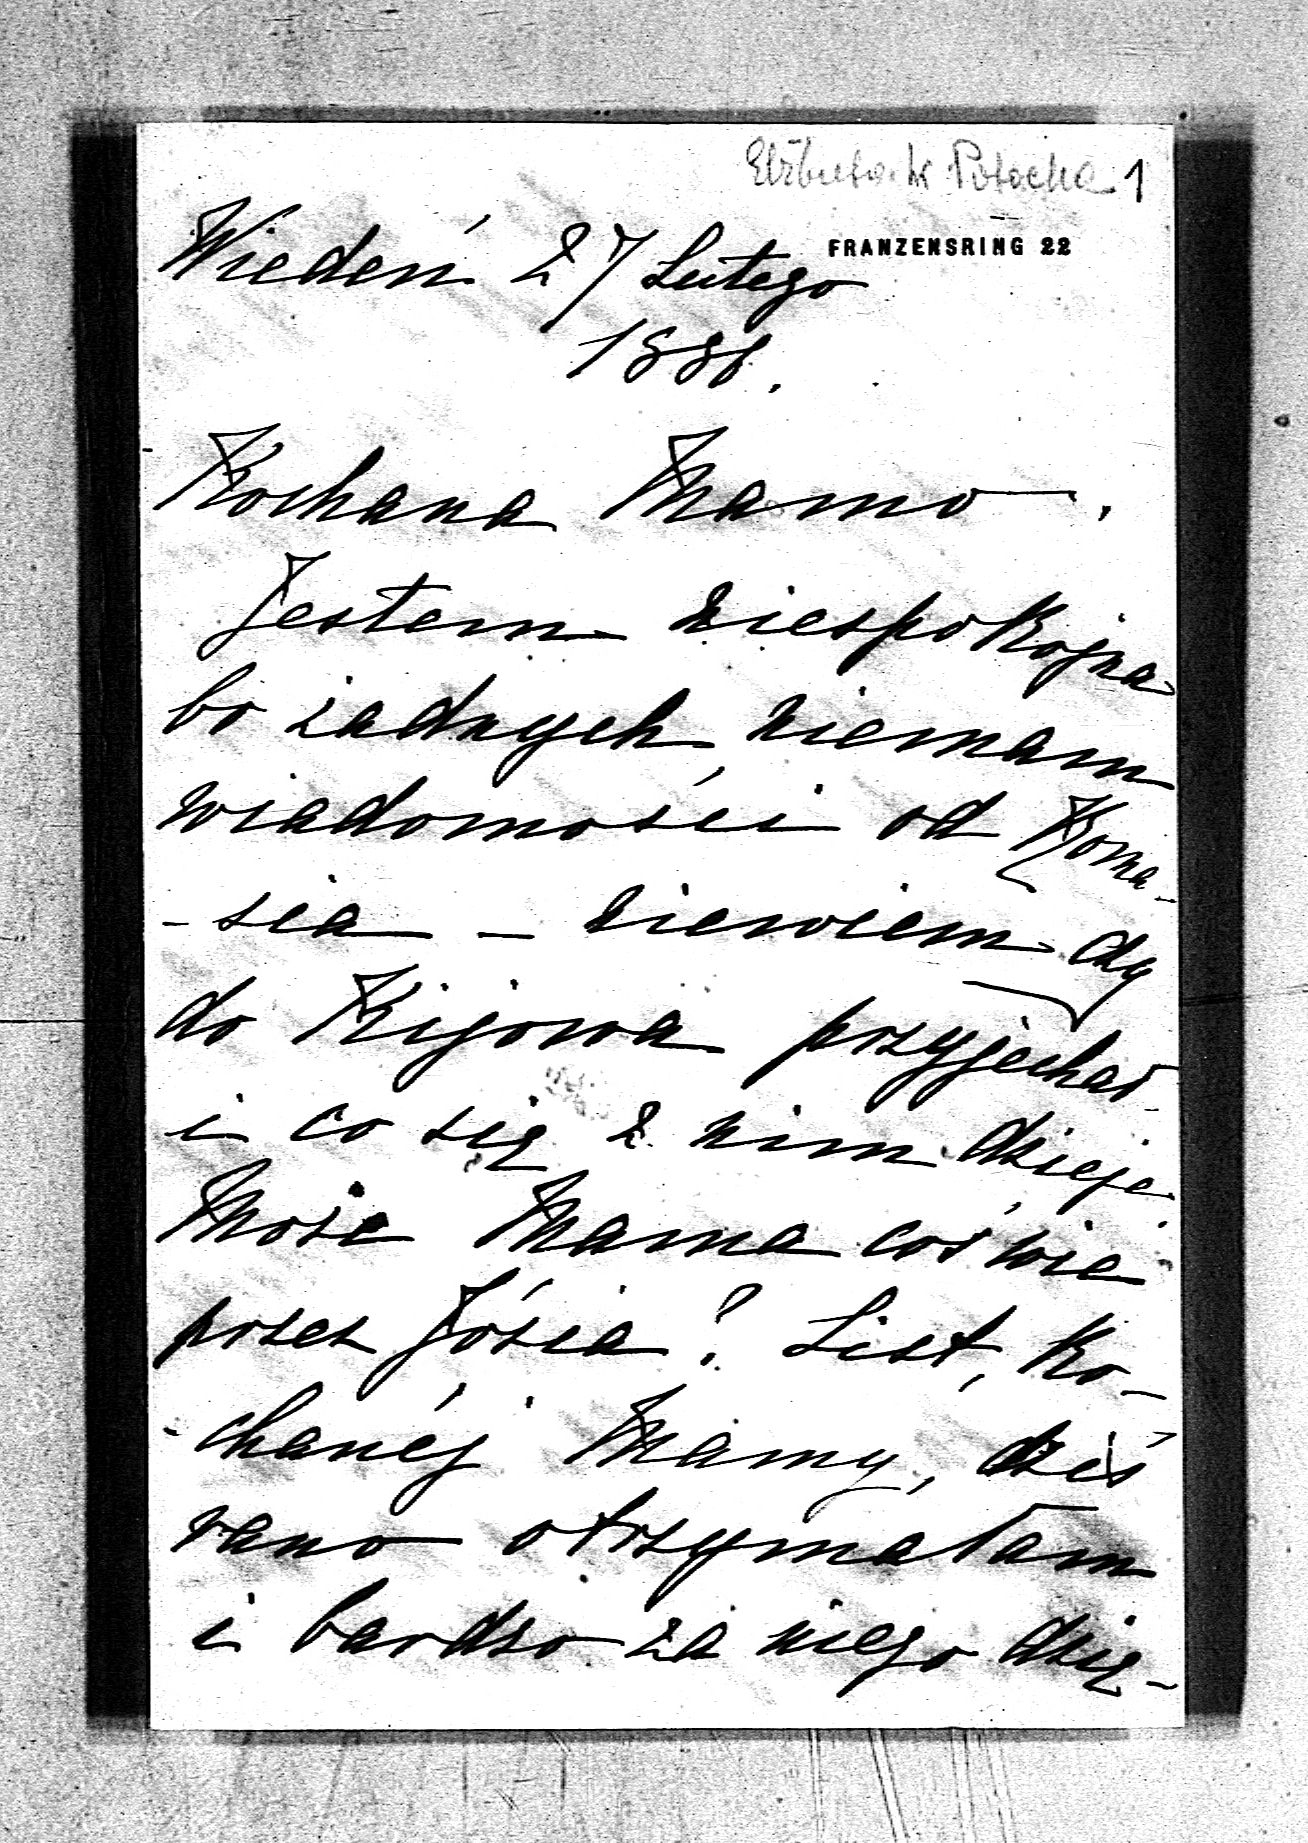 Elżbieta Potocka 1
FRANZENSRING 22
Wiedeń 27 Lutego
1886.
Kochana Mamo.
Jestem niespokojna
bo żadnych niemam
wiadomości od Roma-
-sia - niewiem czy
do Kijowa przyjechał
i co się z nim dzieje.
Może Mama coś wie
przez Józia? List, ko-
-chanéj Mamy, dziś
rano otrzymałam
i bardzo za niego dzię-